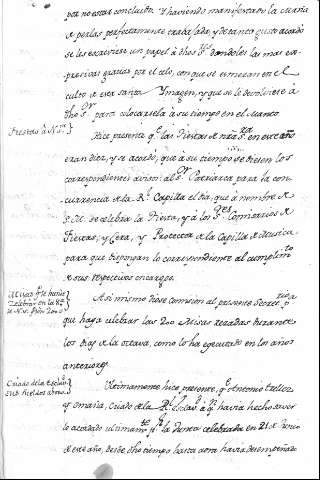 por no estar concluido. Y haviendo manifestado la Maria
de perlas perfectamente trabajada, y de tanto gusto acordó
se les escriviese un papel a dhos Sres dandoles las mas ex-
presivas gracias por el celo, con que se esmeran en el
culto de esta santa Ymagen, y que se lo devolviese a
dho Sor para colocarsela a su tiempo en el Manto.
Fiestas de N. Sra.
Hice presente qe las Fiestas de nra Sra en este año
eran diez, y se acordó, que a su tiempo se diesen los
correspondientes avisos al Sor Patriarca para la con-
currencia de la Rl Capilla el dia, que a nombre de
S. M. se celebra la Fiesta, y a los Sres Comisarios de
Fiestas, y Cera, y Protector de la Capilla de Musica
para que dispongan lo correspondiente al cumplimto
de sus respectivos encargos.
Así mismo diose comision al presente Secretrio pa
que haga celebrar las 200 Misas rezadas durante
los dias de la octava, como lo ha executado en los años
anteriores.
Criado de la Esclavd
Ultimamente hice presente, qe Antonio Tellez
y Omaña, Criado de la Rl Esclavd a qn havia hecho saver
lo acordado ultimamte pr la Junta celebrada en 21 de Junio
de este año, desde dho tiempo hasta aora havia desempeñado